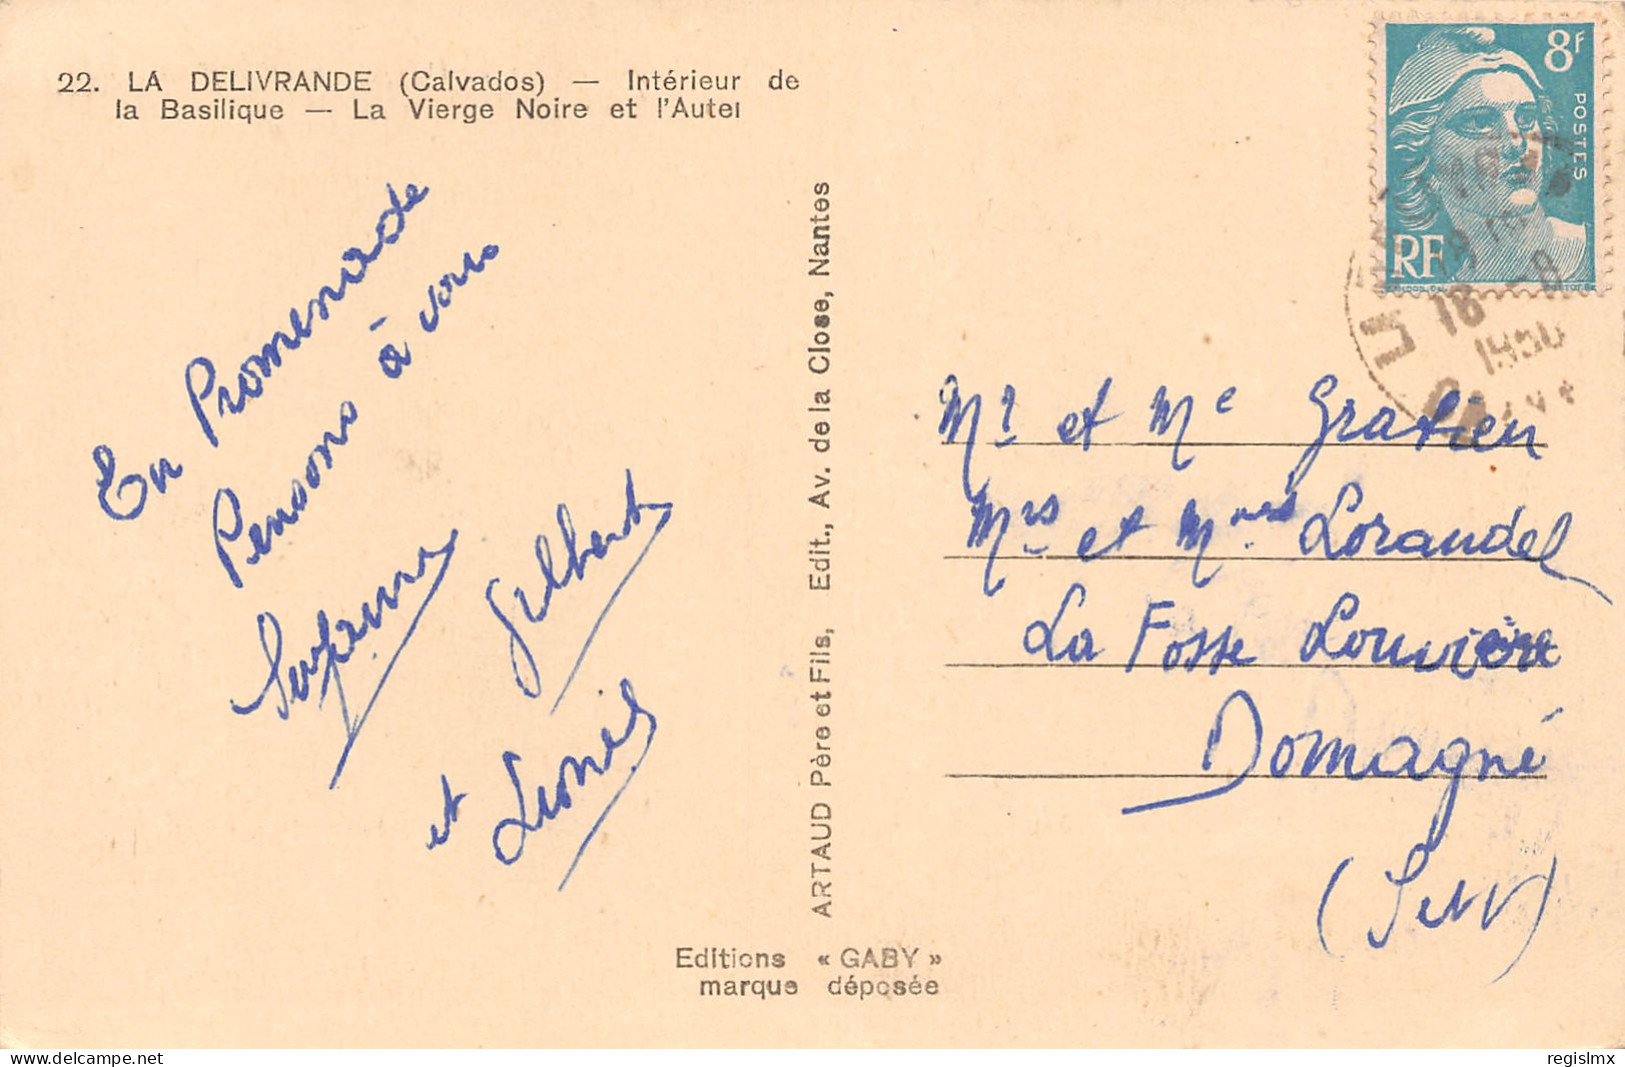 22. LA DELIVRANDE (Calvados) — Intérieur de
la Basilique — La Vierge Noire et l'Autel
En Promenade
Pensons à vous
Gilbert
et Lionel
ARTAUD Père et Fils, Edit., Av. de la Close, Nantes
Editions « GABY »
marque déposée
8F
POSTES
RF
18 - 8
1950
Mr et Me Gratien
Mrs et Mmes Lorandel
La Fosse Louvière
Domagné
(I et V)
regislmx